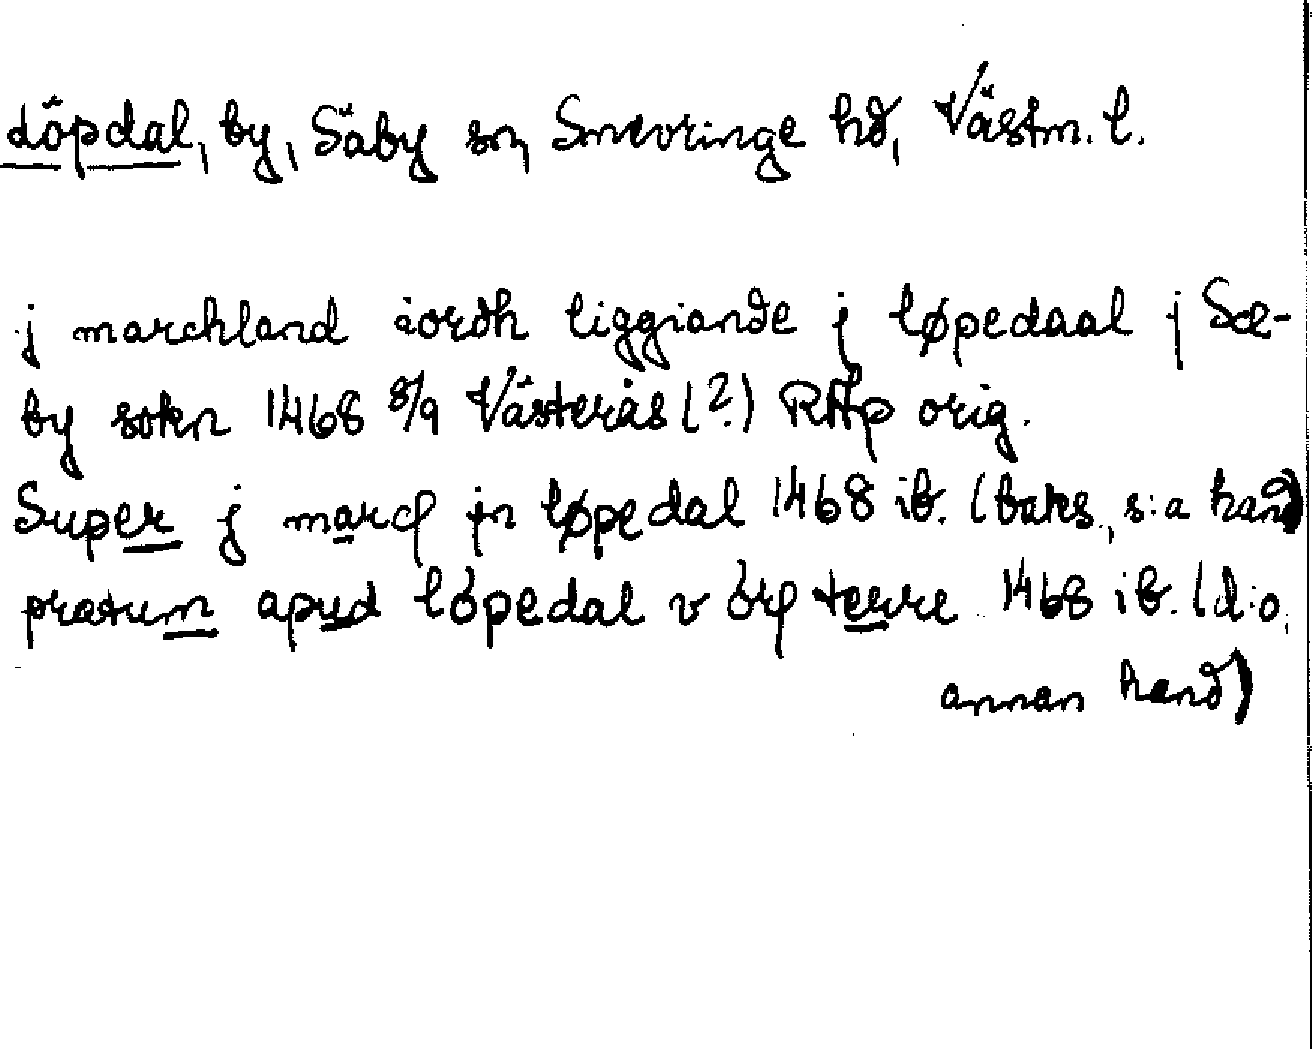 Löpdal, by, Säby sn, Snevringe hd, Västm. l.
j marchland iordh liggiande j løpedaal j Sæ-
by sokn 1468 8/9 Västerås (?) RAp orig.
Super j marc jn løpedal 1468 ib. (baks., s:a hand)
pratum apud löpedal v örl terre 1468 ib. (d:o,
annan hand)